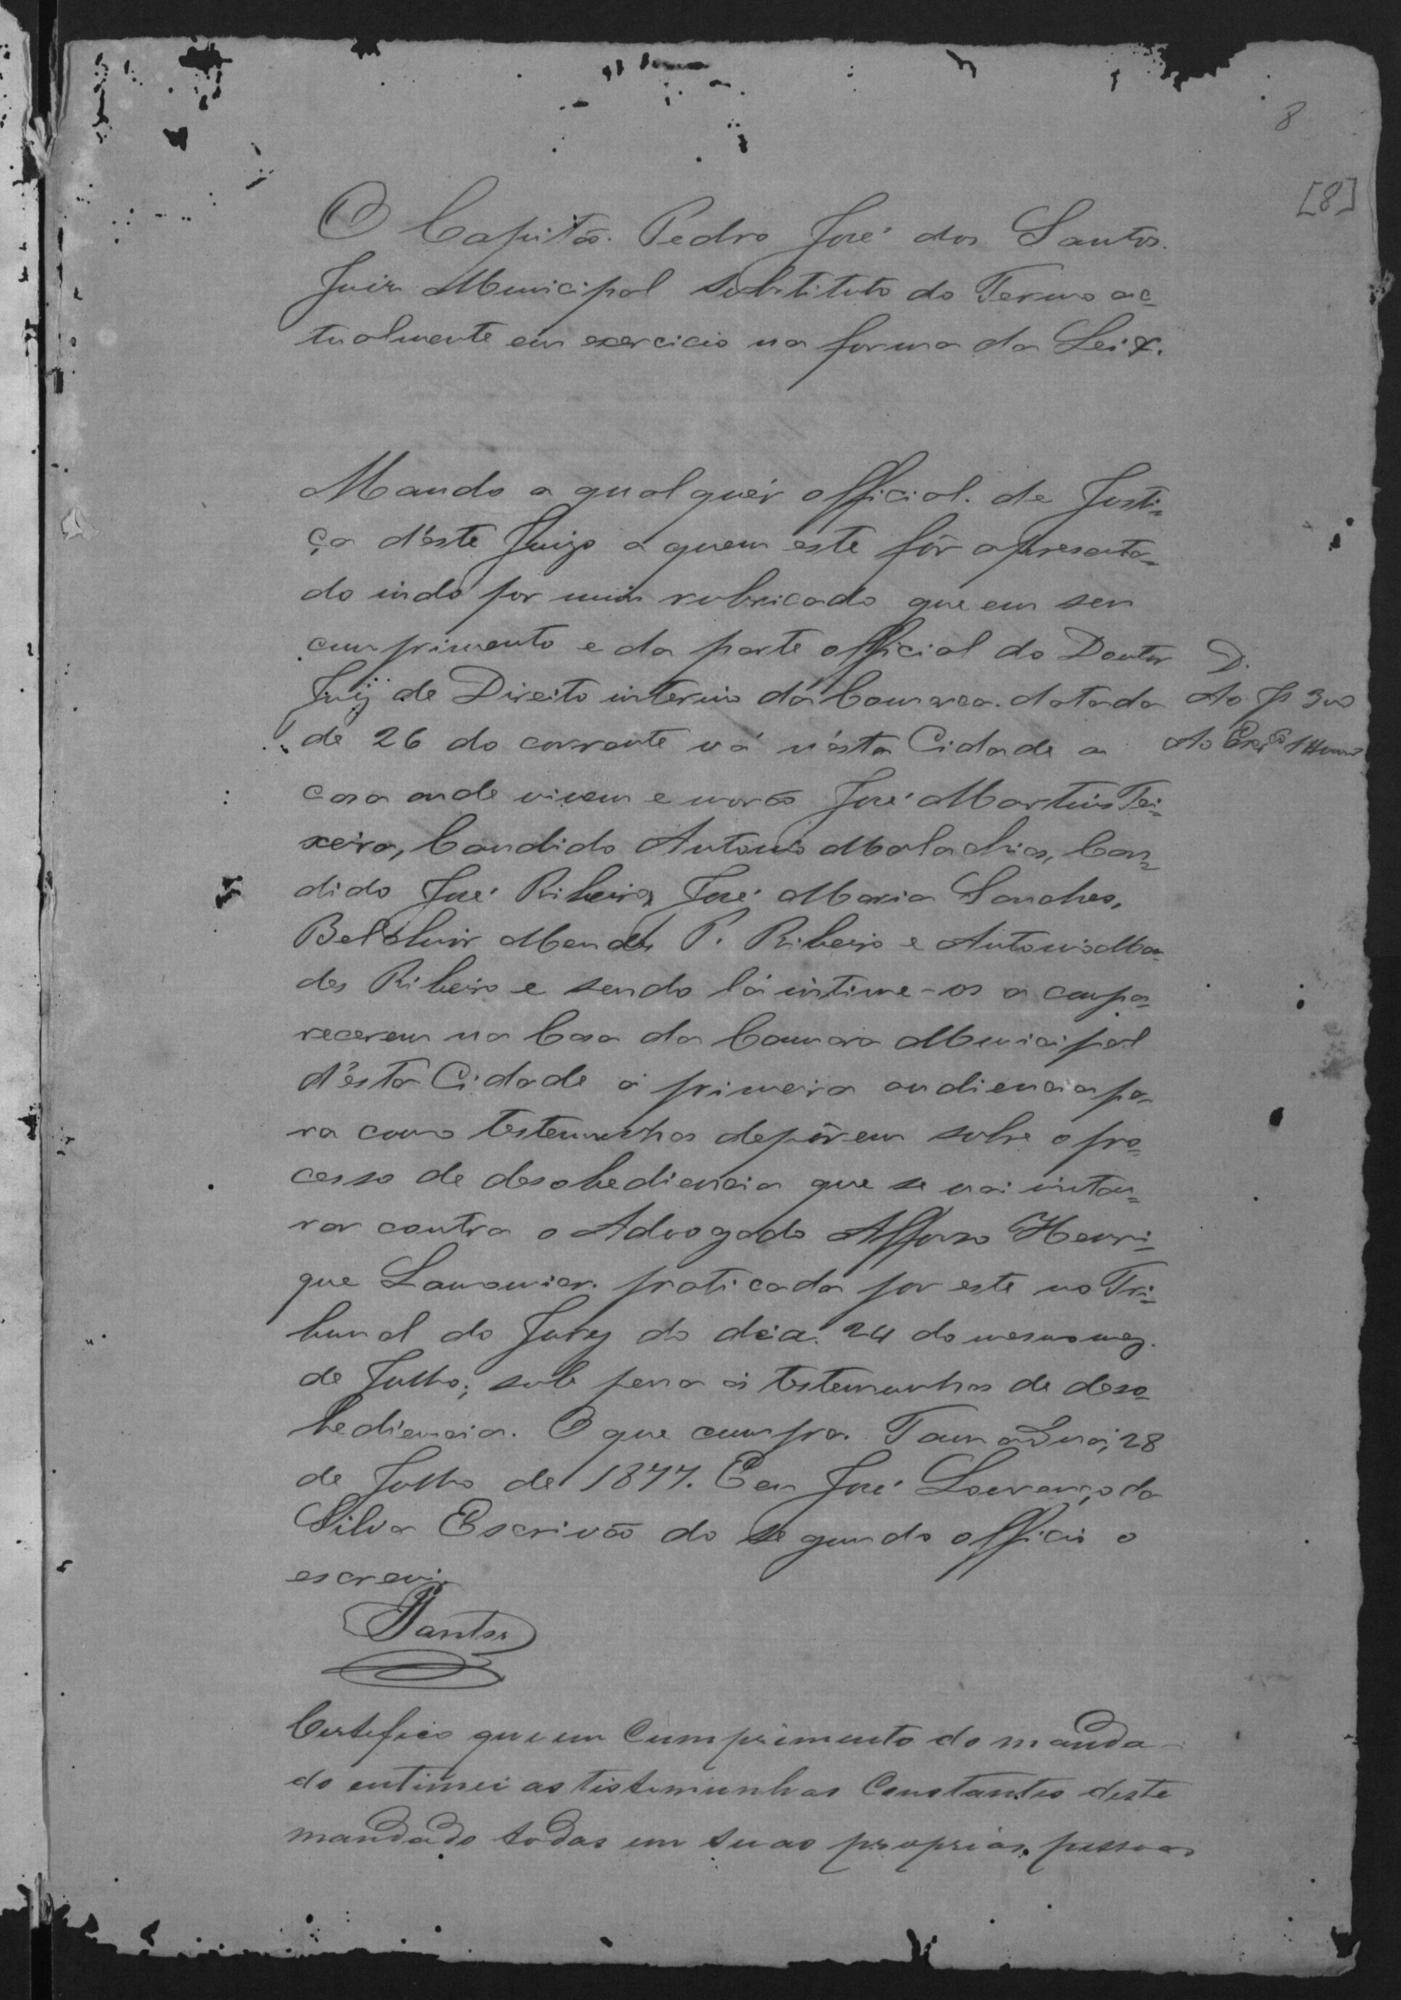 8
[8]
O Capitão Pedro José dos Santos.
Juiz Municipal substituto do Termo ac-
tualmente em exercicio na forma da Lei &.
Mando a qualquér official de Justi-
ça d'éste Juizo a quem este fôr apresenta-
do indo por mim rubricado que em seu
cumprimento e da parte official do Doutor
Juiz de Direito interino da Comarca datada
de 26 do corrente vá n'ésta Cidade a
D.
Ao Js 300
Ao Escr.
casa onde vivem e morão José Martins Tei-
xeira, Candido Antonio Malachias, Can-
dido José Ribeiro, José Maria Sanches,
Belchior Mendes P. Ribeiro e Antonio Men-
des Ribeiro e sendo lá intime-os a compa-
recerem na Casa da Camara Municipal
d'ésta Cidade á primeira audiencia pa-
ra como testemunhas depôrem sobre o pro-
cesso de desobediencia que se vai instau-
rar contra o Advogado Affonso Henri-
que Lamounier praticada por este no Tri-
bunal do Jury do dia 24 do mesmo mez
de Julho; sob pena ás testemunhas de deso-
bediencia. O que cumpra. Tamanduá, 28
de Julho de 1877. Eu José Lourenço da
Silva Escrivão do segundo officio o
escrevi.
Santos
Certifico que em Cumprimento do manda-
do entimei as testimunhas Constantes deste
mandado todas em suas proprias pessoas